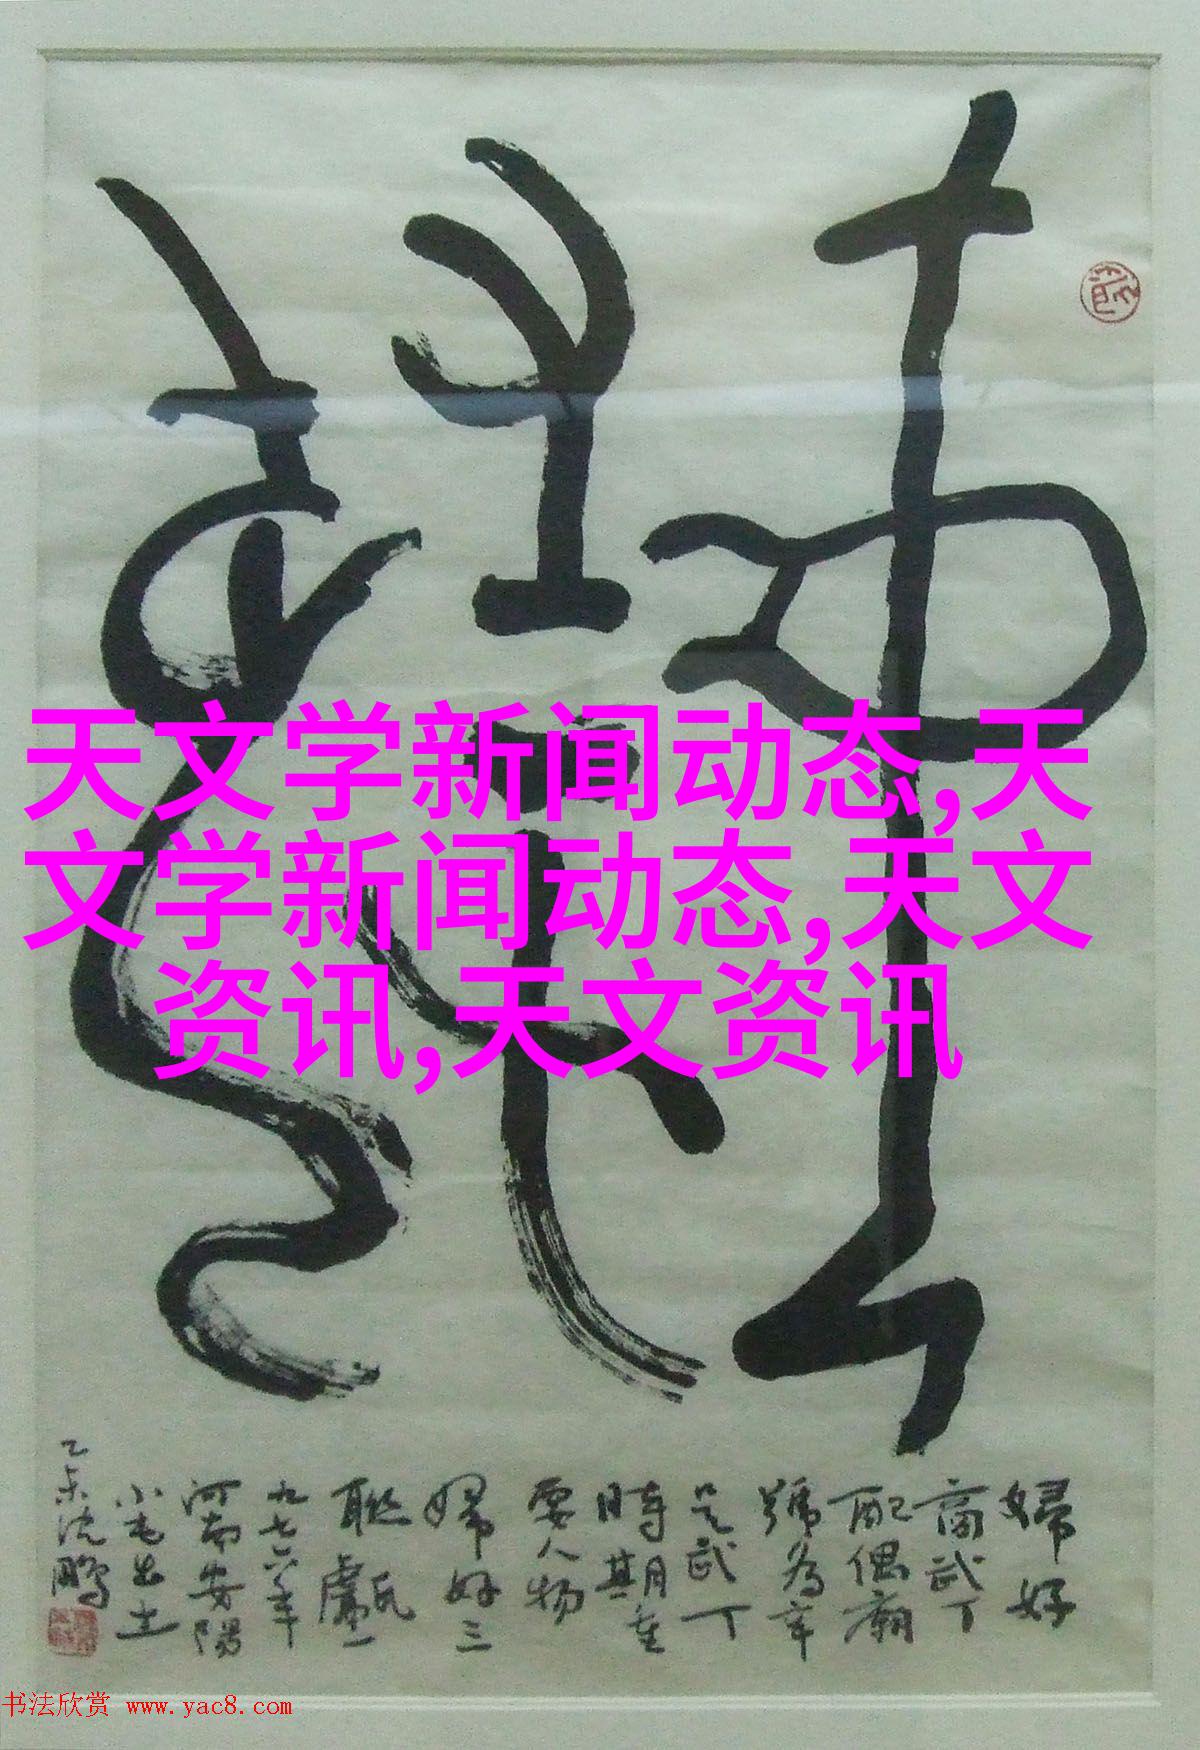 天文学新闻动态,天
文学新闻动态,天文
资讯,天文资讯
婦好
商武丁
配偶廟
號为辛
是武丁
時期重
要人物
婦好三
聯甗一
九七六年
河南安陽
小屯出土
乙未沈鹏
书法欣赏 www.yac8.com